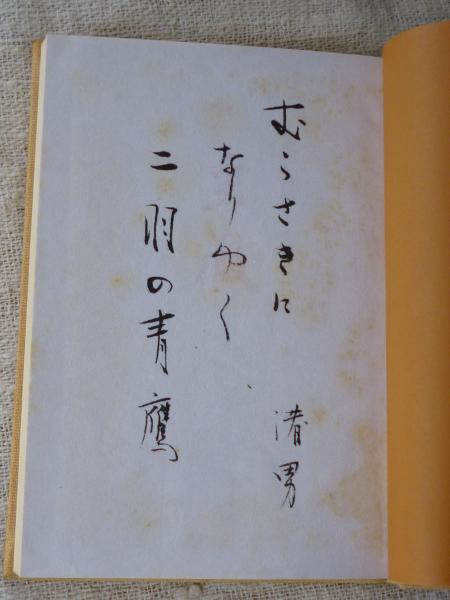 むらさきに
なりゆく
二羽の青鷹
渚男